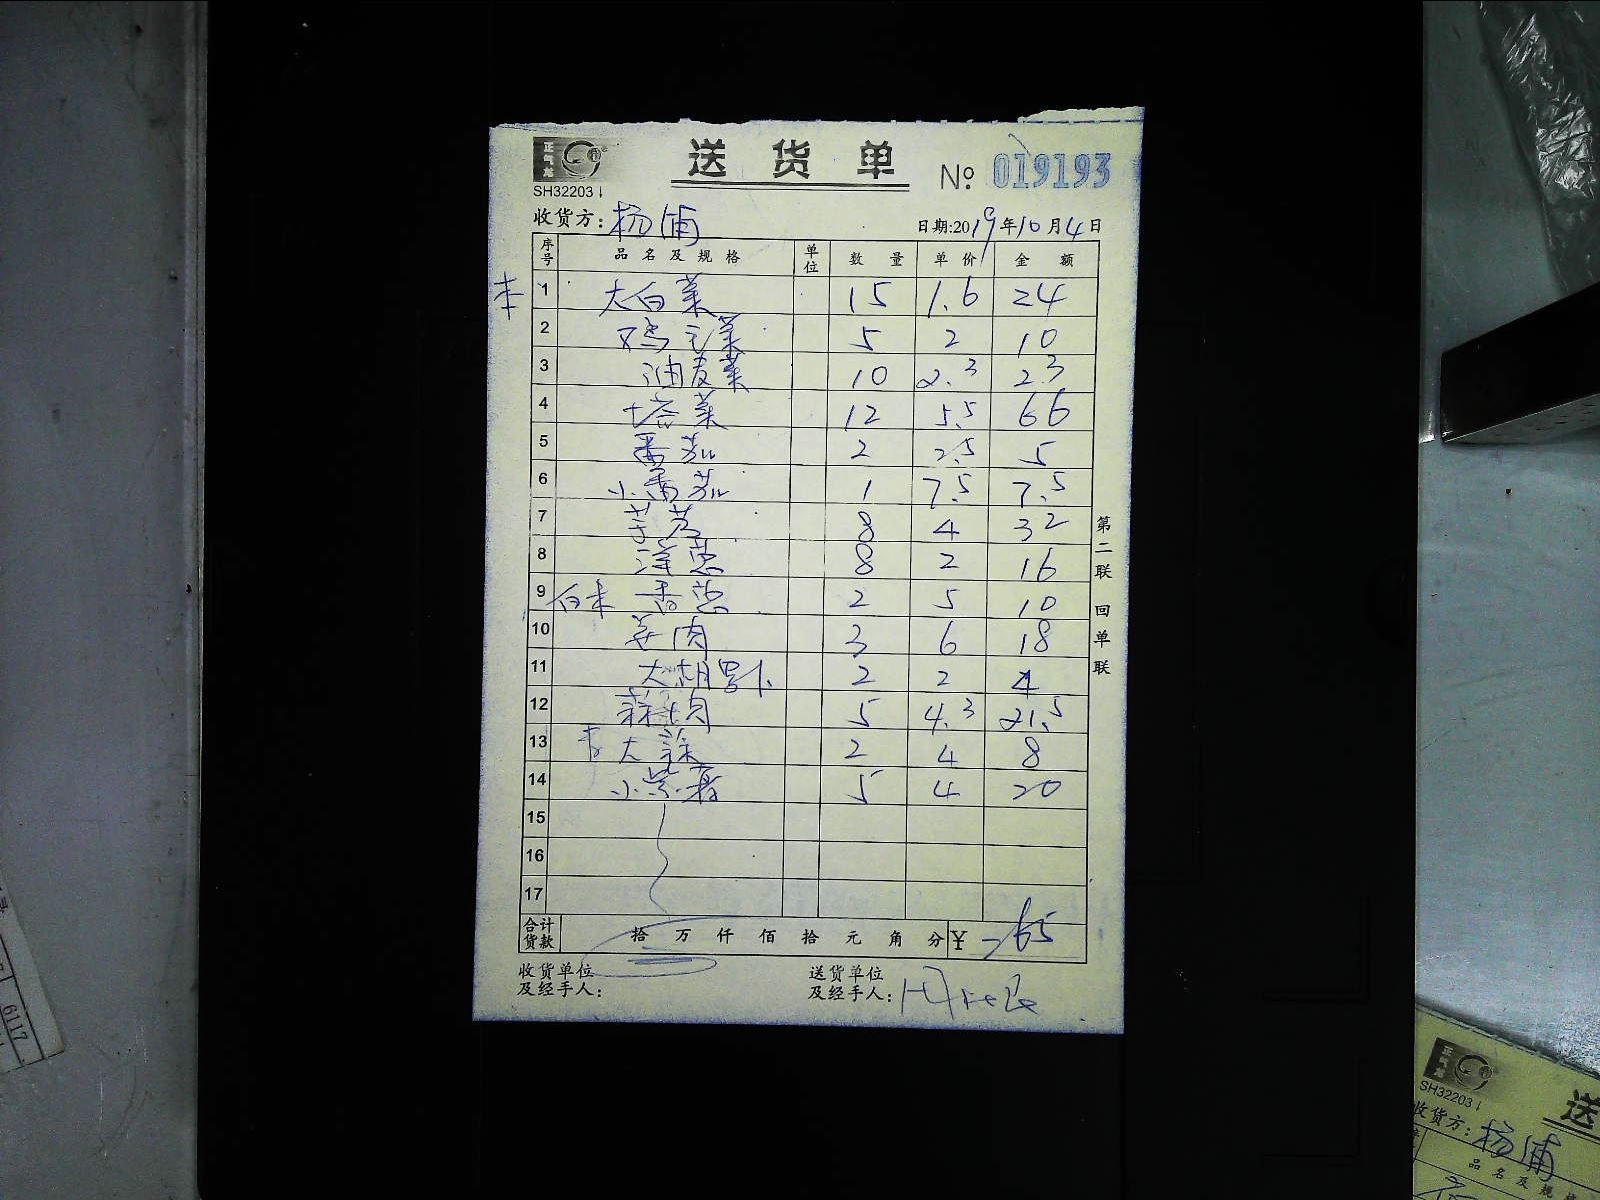 正气龙
送货单 № 019193
SH32203
收货方: 杨浦 日期:2019年10月4日
序号 品名及规格 单位 数量 单价 金额
1 大白菜 15 1.6 24
2 鸡毛菜 5 2 10
3 油麦菜 10 2.3 23
4 塔菜 12 5.5 66
5 番茄 2 2.5 5
6 小番茄 1 7.5 7.5
7 芋艿 8 4 32
8 洋葱 8 2 16
9 香葱 2 5 10
10 姜肉 3 6 18
11 大胡罗卜 2 2 4
12 蒜肉 5 4.3 21.5
13 大蒜 2 4 8
14 小紫薯 5 4 20
15
16
17
合计货款 拾万仟佰拾元角分 ¥ 265
收货单位及经手人: 送货单位及经手人:
第二联 回单联
6117
正气龙
SH32203
送
收货方: 杨浦
品名及规